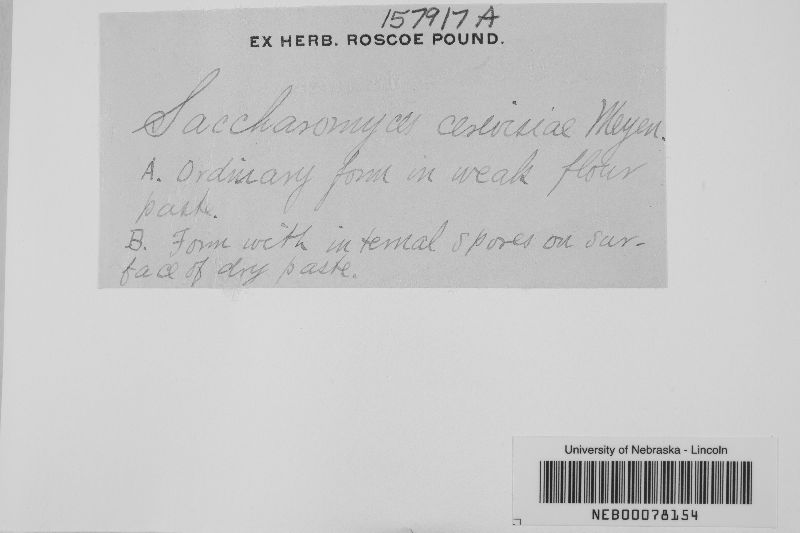 157917 A
EX HERB. ROSCOE POUND.
Saccharomyces cerevisiae Meyen.
A. Ordinary form in weak flour
paste.
B. Form with internal spores on sur-
face of dry paste.
University of Nebraska - Lincoln
NEB00078154